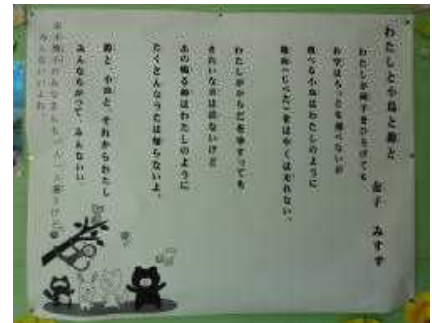 「わたしと小鳥と鈴と
金子 みすず
わたしが両手をひろげても、
お空はちっとも飛べないが
飛べる小鳥はわたしのように
地面(じべた)をはやくは走れない。
わたしがからだをゆすっても
きれいな音は出ないけど
あの鳴る鈴はわたしのように
たくさんなうたは知らないよ。
鈴と 小鳥と それからわたし
みんなちがって、みんないい
みんないいよね。